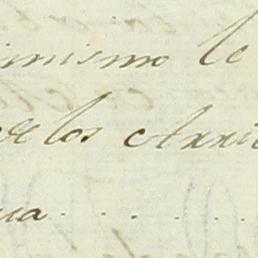 imismo le
de los Arri
ua . . . .